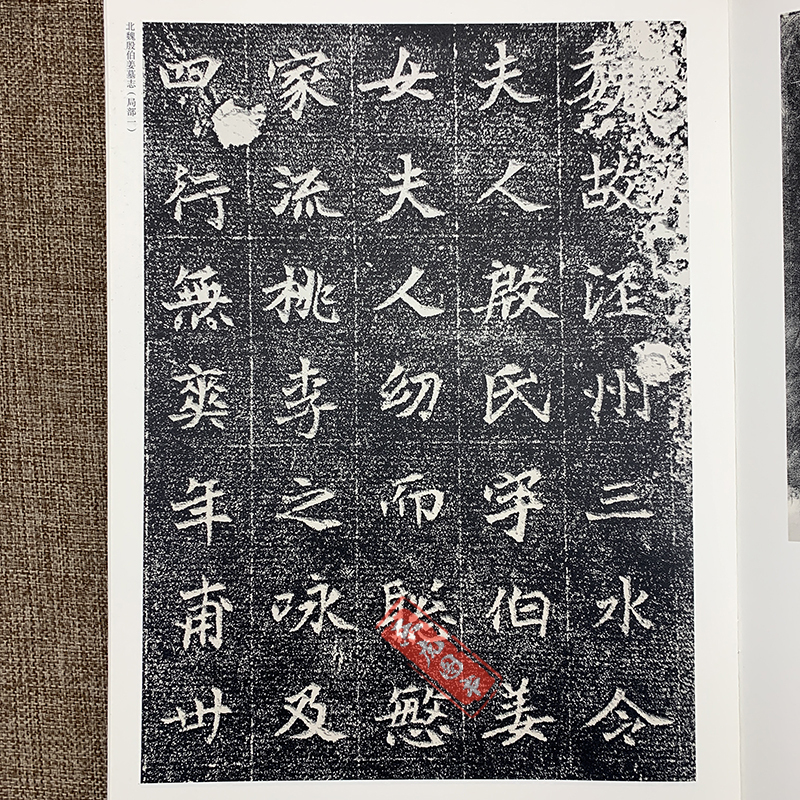 魏故涇州三水令
夫人殷氏字伯姜
女夫人幼而聰慜
家流桃李之咏及
四行無爽年甫卅
北魏殷伯姜墓志（局部一）